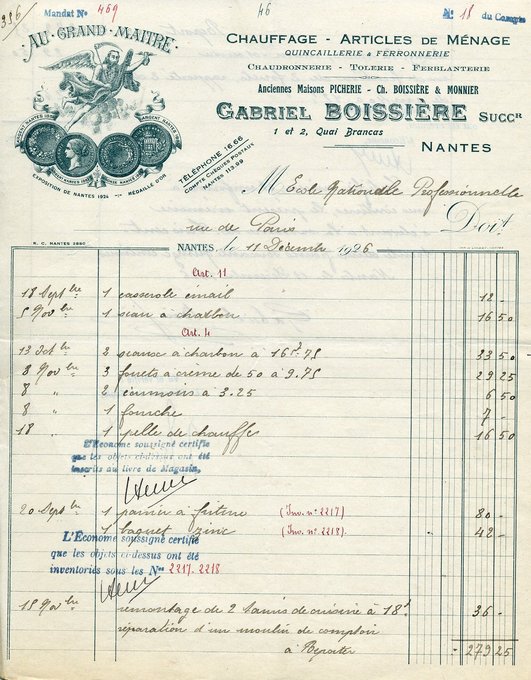 356
Mandat No 469
46
No 18 du Compte
AU GRAND MAITRE
CHAUFFAGE - ARTICLES DE MÉNAGE
QUINCAILLERIE & FERRONNERIE
CHAUDRONNERIE - TOLERIE - FERBLANTERIE
Anciennes Maisons PICHERIE - Ch. BOISSIÈRE & MONNIER
GABRIEL BOISSIÈRE SUCCR
1 et 2, Quai Brancas
NANTES
TÉLÉPHONE 16.66
COMPTE CHÈQUES POSTAUX
NANTES 113.99
EXPOSITION DE NANTES 1924 - MÉDAILLE D'OR
M École Nationale Professionnelle
rue de Paris Doit
R. C. NANTES 2880
NANTES, le 11 Décembre 1926
Art. 11
18 Septbre 1 casserole émail 12 -
5 Novbre 1 seau à charbon 16 50
Art. 4
13 Octbre 2 seaux à charbon à 16f.75 33 50
8 Novbre 3 fouets à crème de 50 à 9.75 29 25
8 " 2 écumoirs à 3.25 6 50
8 " 1 fourche 7 -
18 " 1 pelle de chauffe 16 50
L'Econome soussigné certifie
que les objets ci-dessus ont été
inscrits au livre de Magasin,
20 Septbre 1 panier à friture (Inv. no 2217) 80 -
1 baquet zinc (Inv. no 2218) 42 -
L'Économe soussigné certifie
que les objets ci-dessus ont été
inventoriés sous les Nos 2217-2218
18 Novbre remontage de 2 tamis de cuisine à 18f 36 -
réparation d'un moulin de comptoir
à Reporter 279 25